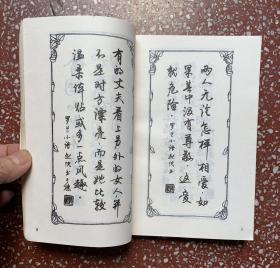 两人无论怎样相爱，如
果其中没有尊敬，这爱
就危险。
罗兰小语
有的丈夫看上另外的女人并
不是对方漂亮，而是她比较
温柔体贴或多一点风趣。
罗兰小语